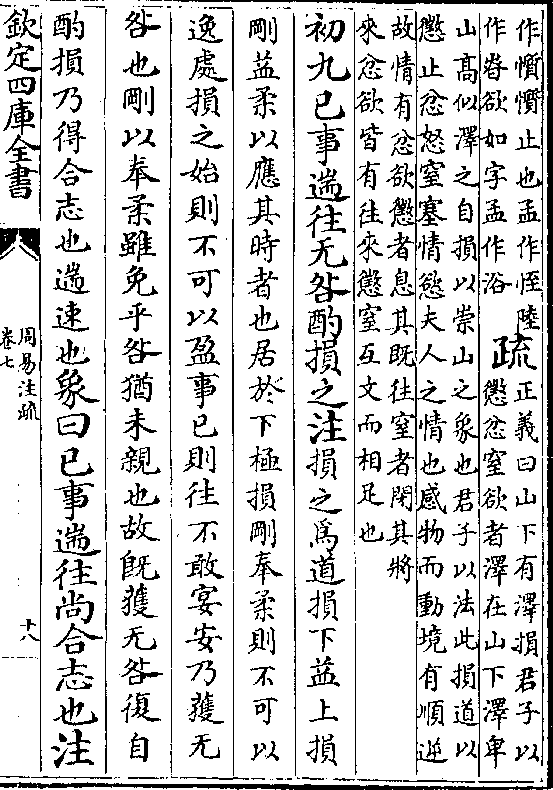 作懫懫止也孟作恎陸
作㫺欲如字孟作浴
疏
正義曰山下有澤損君子以
懲忿窒欲者澤在山下澤卑
山高似澤之自損以崇山之象也君子以法此損道以
懲止忿怒窒塞情慾夫人之情也感物而動境有順逆
故情有忿欲懲者息其既往窒者閉其將
來忿欲皆有往來懲窒互文而相足也
初九已事遄往无咎酌損之注損之爲道損下益上損
剛益柔以應其時者也居於下極損剛奉柔則不可以
逸處損之始則不可以盈事已則往不敢宴安乃獲无
咎也剛以奉柔雖免乎咎猶未親也故既獲无咎復自
酌損乃得合志也遄速也象曰已事遄往尚合志也注
欽定四庫全書
周易注疏
卷七
十八